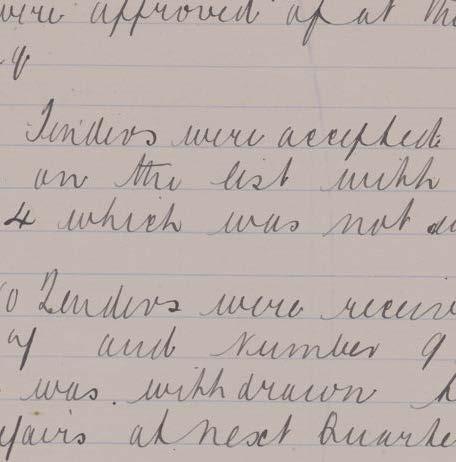 were approved of at the
Tenders were accepted
on the list with
4 which was not
Tenders were receiv
7 and Number 9
was withdrawn
at next Quarte